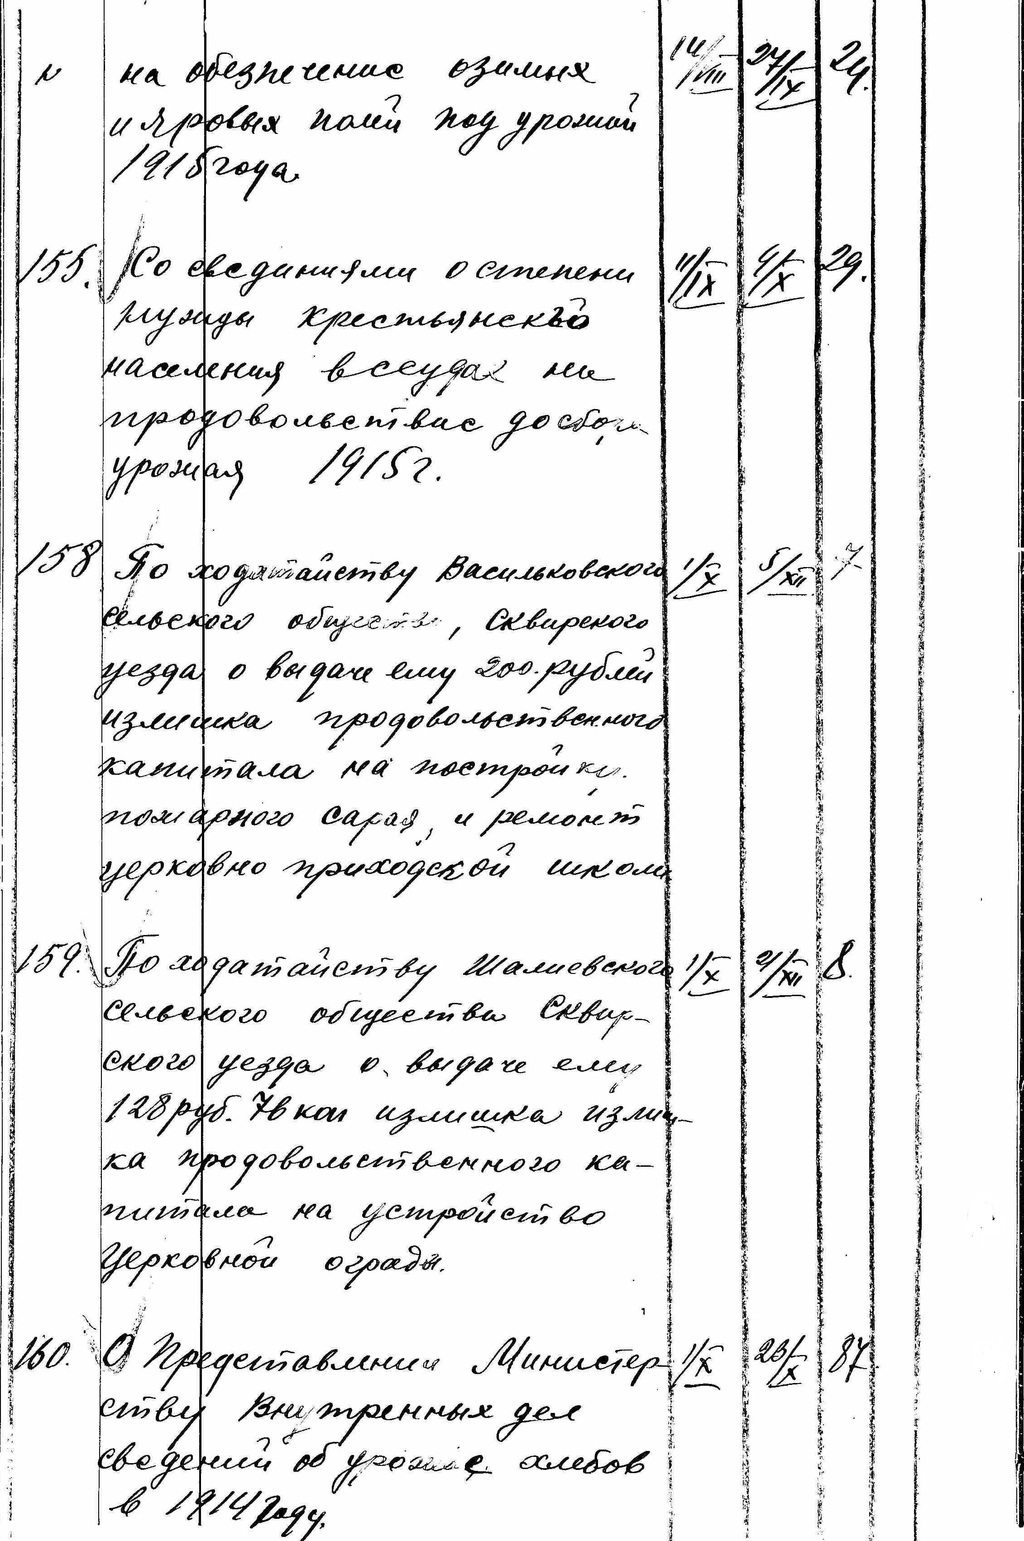 на обезпечение озимых 14/VIII 27/IX 24.
и яровых полей под урожай
1915 года.
155. Со сведениями о степени 11/IX 4/X 29.
нужды крестьянского
населения в ссудах на
продовольствие до сбора
урожая 1915 г.
158 По ходатайству Васильковского 1/X 5/XII 7
сельского общества, Сквирского
уезда о выдаче ему 200 рублей
излишка продовольственного
капитала на постройку
пожарного сарая, и ремонт
церковно приходской школы
159. По ходатайству Шалиевского 1/X 2/XII 8.
сельского общества Сквир-
ского уезда о выдаче ему
128 руб. 76 коп излишка излиш-
ка продовольственного ка-
питала на устройство
Церковной ограды.
160. О Представлении Министер 1/X 23/X 87
ству Внутренных дел
сведений об урожае хлебов
в 1914 году.